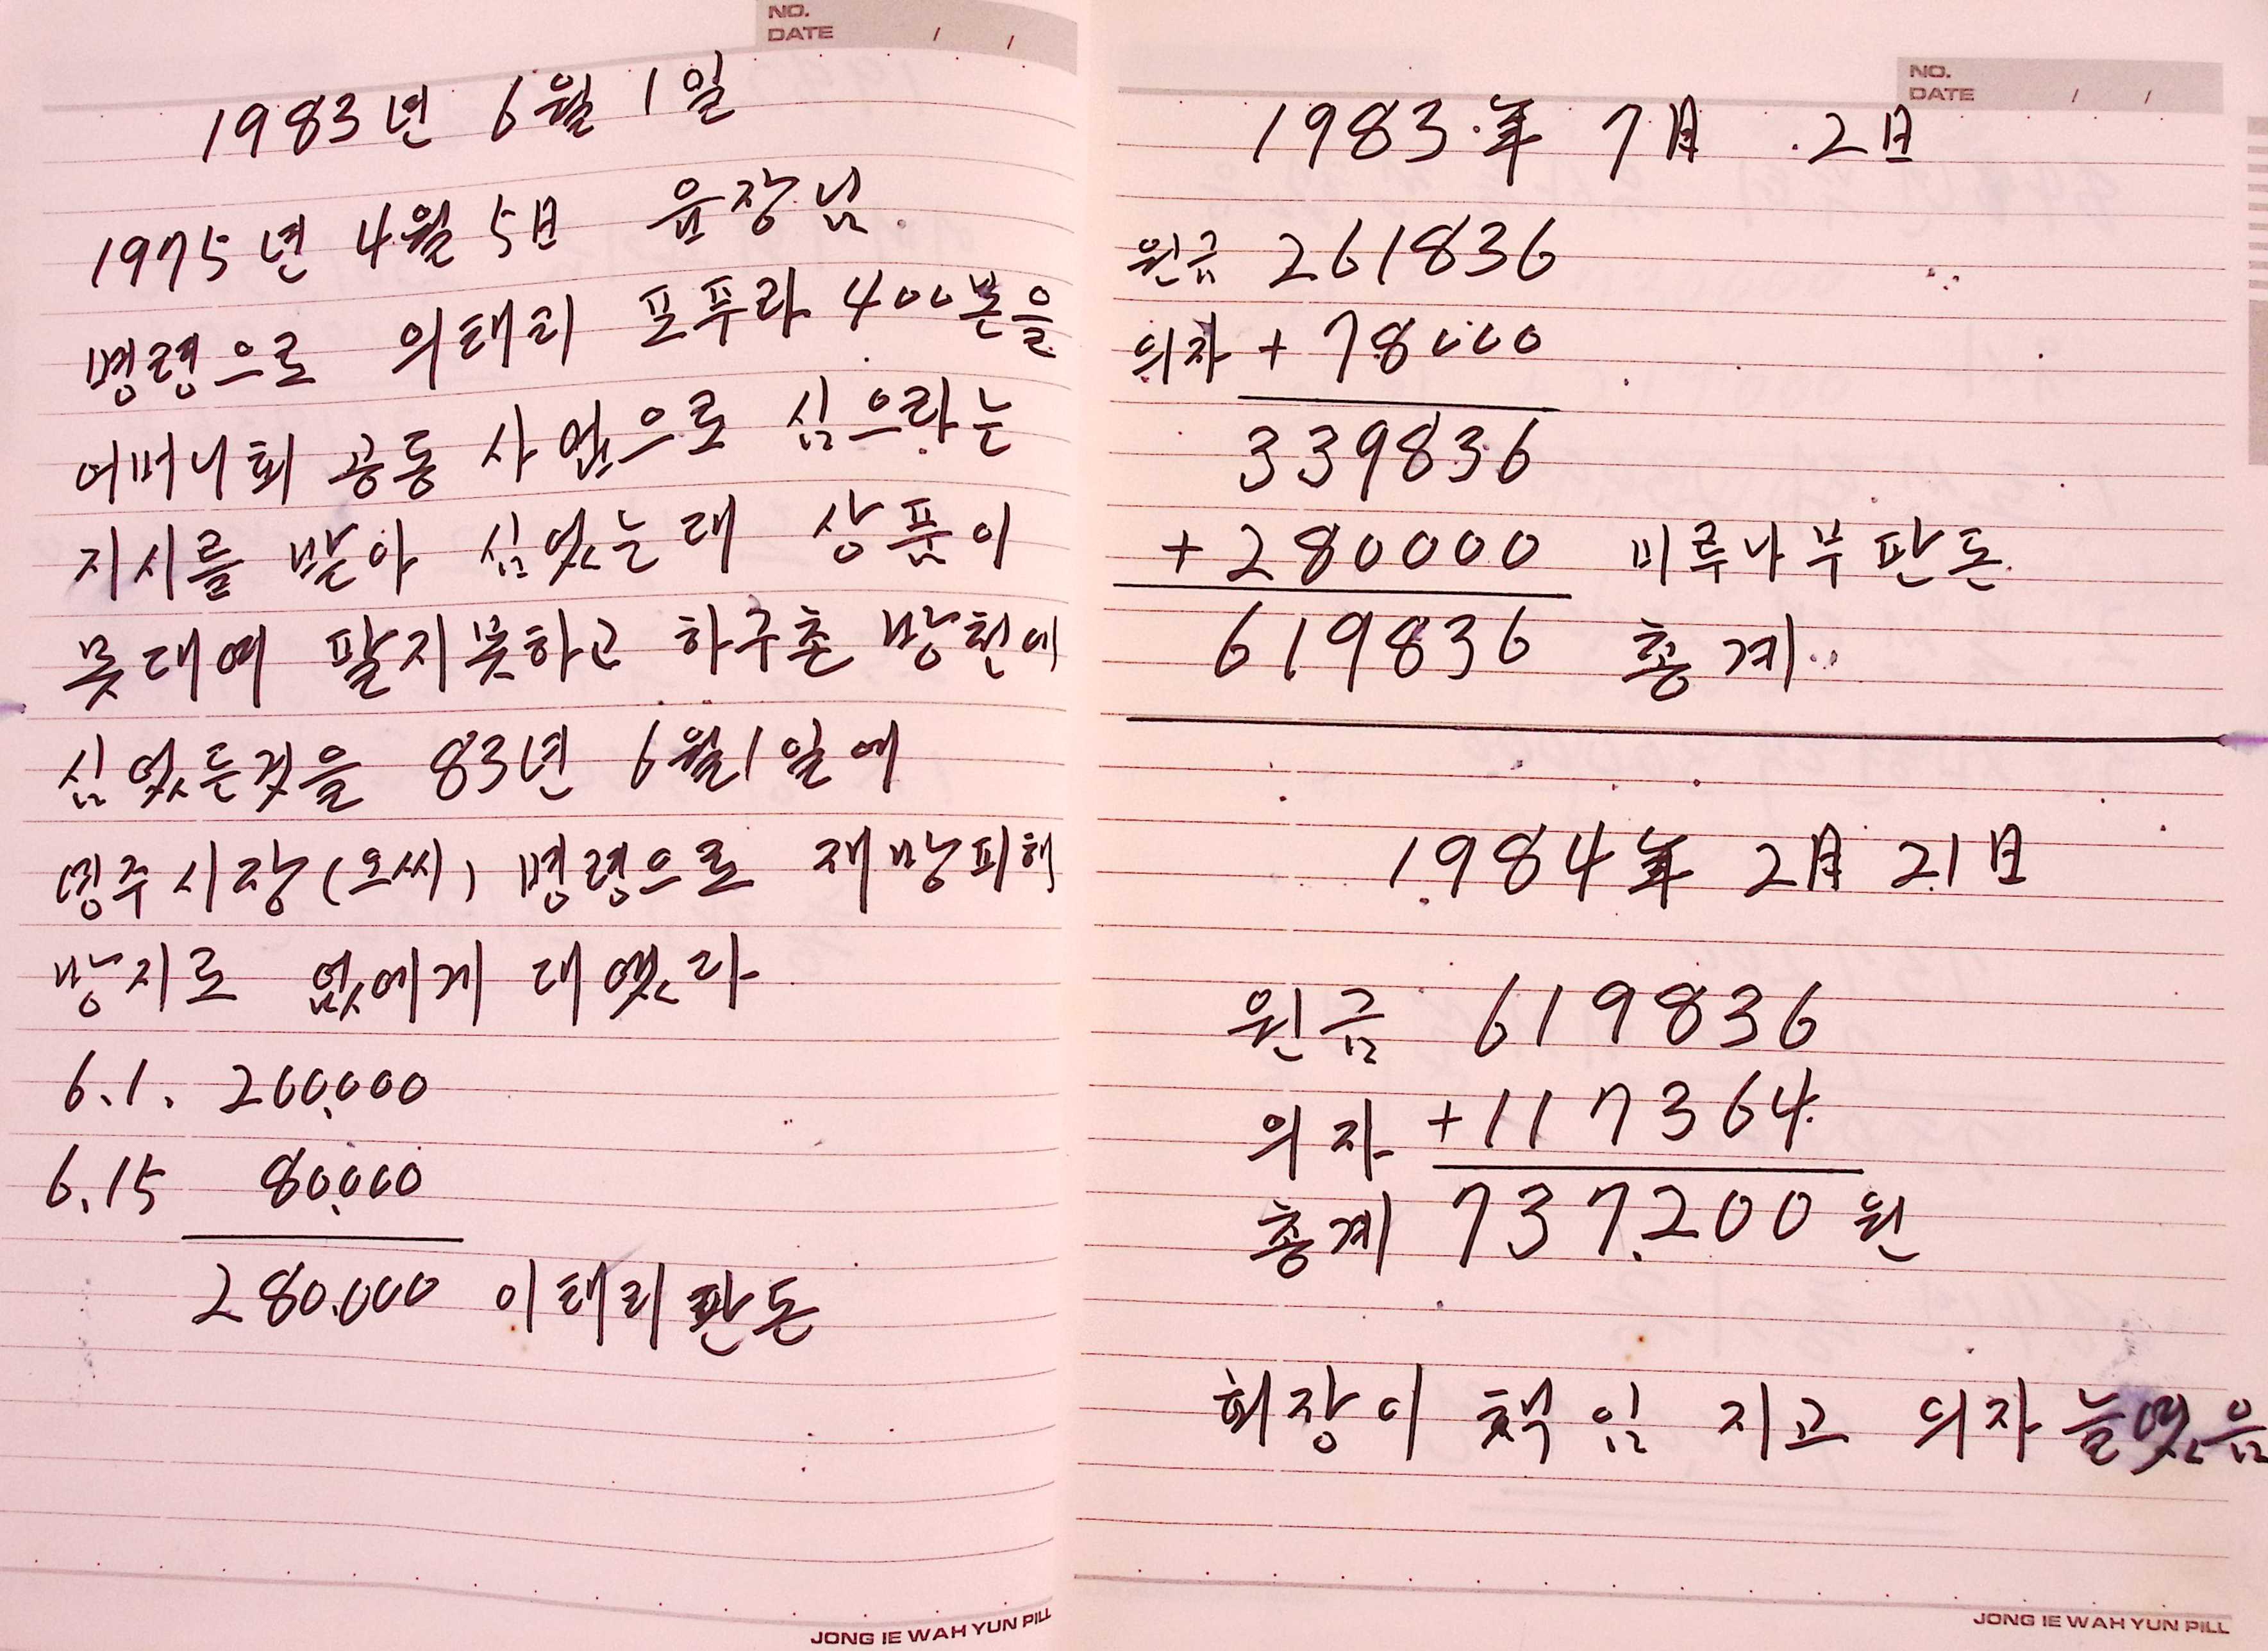 NO.
DATE / /
1983년 6월 1일
1975년 4월 5日 윤장님.
명령으로 의태리 포푸라 400본을
어머니회 공동 사업으로 심으라는
지시를 받아 심었는대 상품이
못대여 팔지못하고 하구촌 방천에
심었든것을 83년 6월1일에
명주시장(오씨) 명령으로 재방피해
방지로 없에게 대엿다
6.1. 200,000
6.15 80,000
280.000 이태리판돈
JONG IE WAH YUN PILL
NO.
DATE / /
1983.年 7月 .2日
원금 261836
의자 + 78000
339836
+ 280000 미루나무판돈
619836 총계..
1984年 2月 21日
원금 619836
의자 +117364
총계 737.200원
회장이 책임 지고 의자 늘엿음
JONG IE WAH YUN PILL